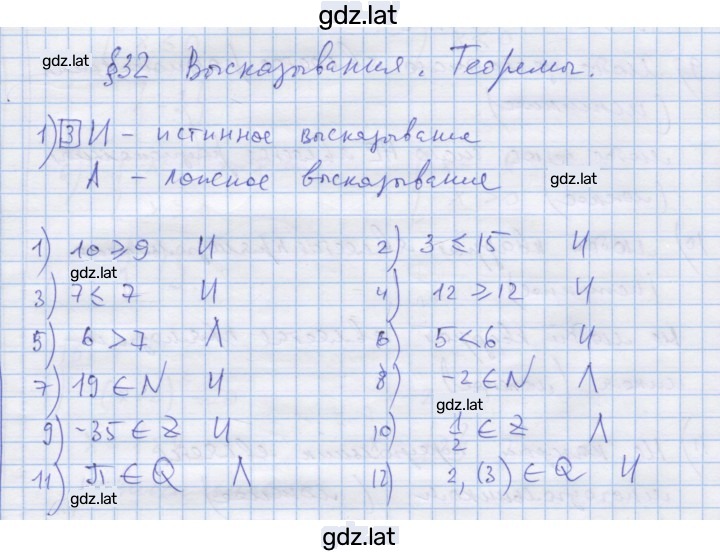 gdz.lat
gdz.lat
§32 Высказывания. Теоремы.
1) 3 И – истинное высказывание
Л – ложное высказывание
gdz.lat
1) 10 ⩾ 9 И 2) 3 ⩽ 15 И
gdz.lat
3) 7 ⩽ 7 И 4) 12 ⩾ 12 И
5) 6 > 7 Л 6) 5 < 6 И
7) 19 ∈ N И 8) -2 ∈ N Л
gdz.lat
9) -35 ∈ Z И 10) 1/2 ∈ Z Л
11) π ∈ Q Л 12) 2,(3) ∈ Q И
gdz.lat
gdz.lat